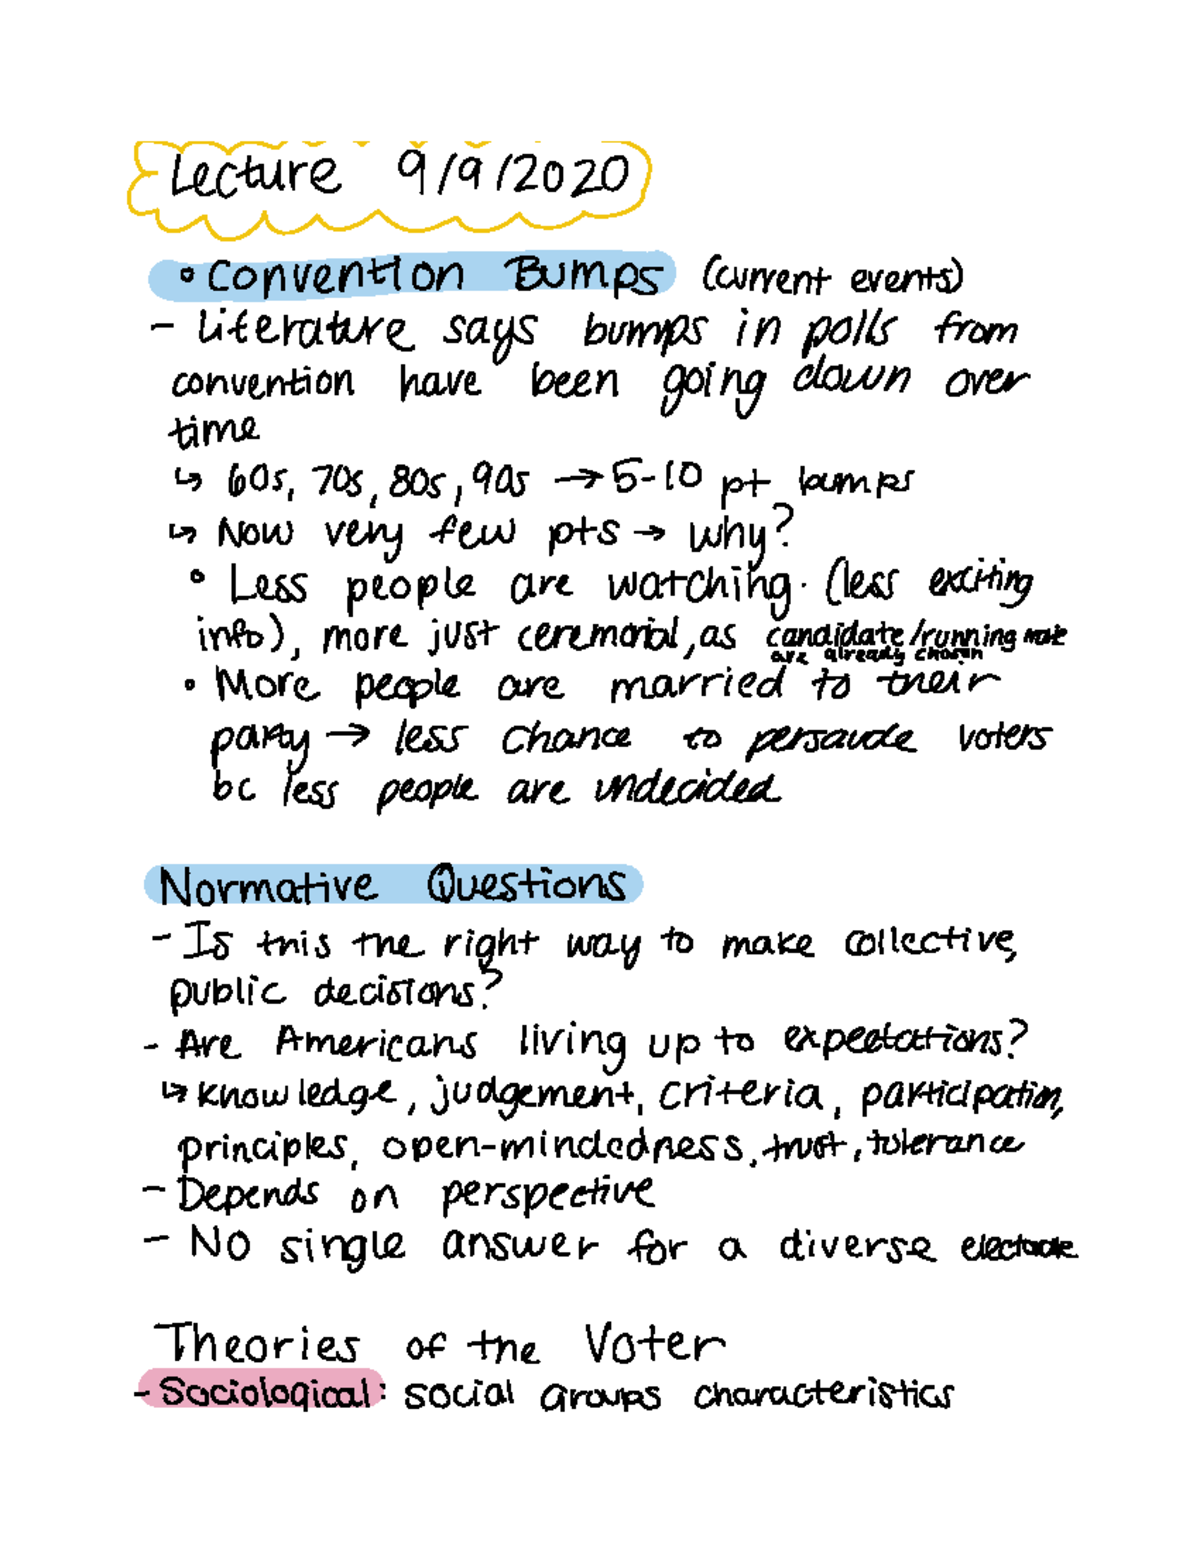 Lecture 9/9/2020
• Convention Bumps (current events)
- Literature says bumps in polls from
convention have been going down over
time
↳ 60s, 70s, 80s, 90s → 5-10 pt bumps
↳ Now very few pts → why?
• Less people are watching. (less exciting
info), more just ceremonial, as candidate/running mate
are already chosen
• More people are married to their
party → less chance to persaude voters
bc less people are undecided
Normative Questions
- Is this the right way to make collective,
public decisions?
- Are Americans living up to expectations?
↳ knowledge, judgement, criteria, participation,
principles, open-mindedness, trust, tolerance
- Depends on perspective
- No single answer for a diverse electorate
Theories of the Voter
- Sociological: social groups characteristics